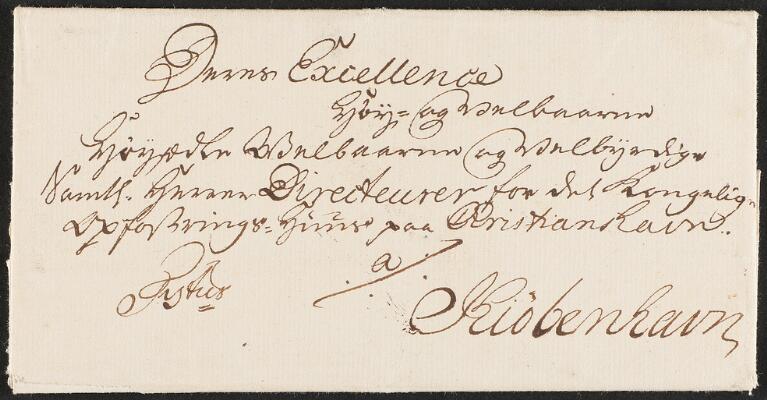 Deres Excellence
Høy= og Velbaarne
Høyædle Velbaarne og Velbyrdige
Samtl. Herrer Directeurer for det Kongelige
Opfostrings=Huus paa Cristianshavn.
a
Kiöbenhavn